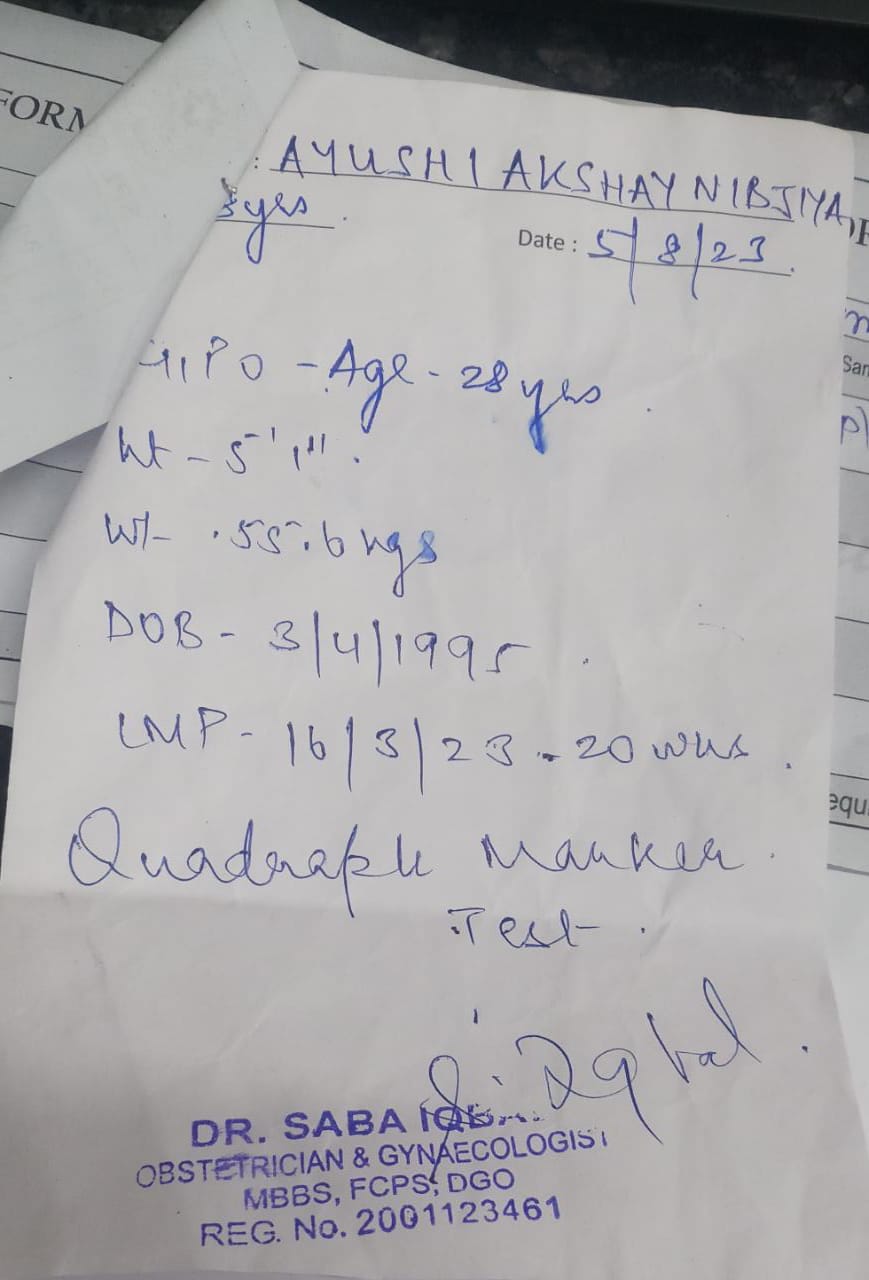 FORM
: AYUSHI AKSHAY NIBJIYA
8yes
Date : 5/8/23
G1P0 - Age - 28 yrs
ht - 5'1"
wt - 55.6 kgs
DOB - 3/4/1995
LMP - 16/3/23 - 20 wks
Quadruple Marker
Test
S. Iqbal
DR. SABA IQBA
OBSTETRICIAN & GYNAECOLOGIST
MBBS, FCPS, DGO
REG. No. 2001123461
San
equ